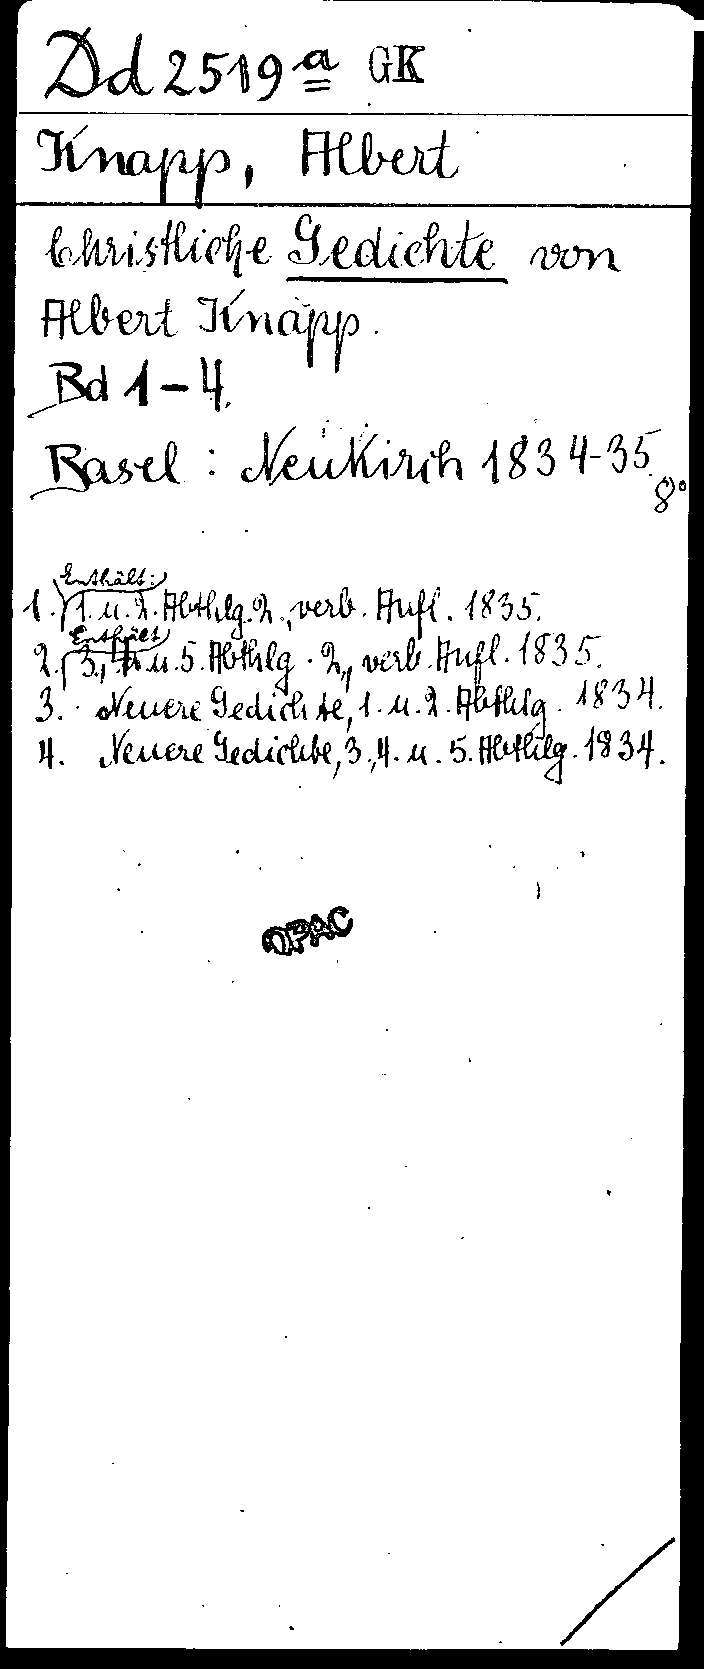 Dd 2519 a GK
Knapp, Albert
Christliche Gedichte von
Albert Knapp.
Bd 1-4.
Basel: Neukirch 1834-35.
8°
Enthält:
1. 1. u. 2. Abthlg. 2., verb. Aufl. 1835.
Enthält
2. 3., 4. u. 5. Abthlg. 2., verb. Aufl. 1835.
3. Neuere Gedichte, 1. u. 2. Abthlg. 1834.
4. Neuere Gedichte, 3., 4. u. 5. Abthlg. 1834.
OPAC